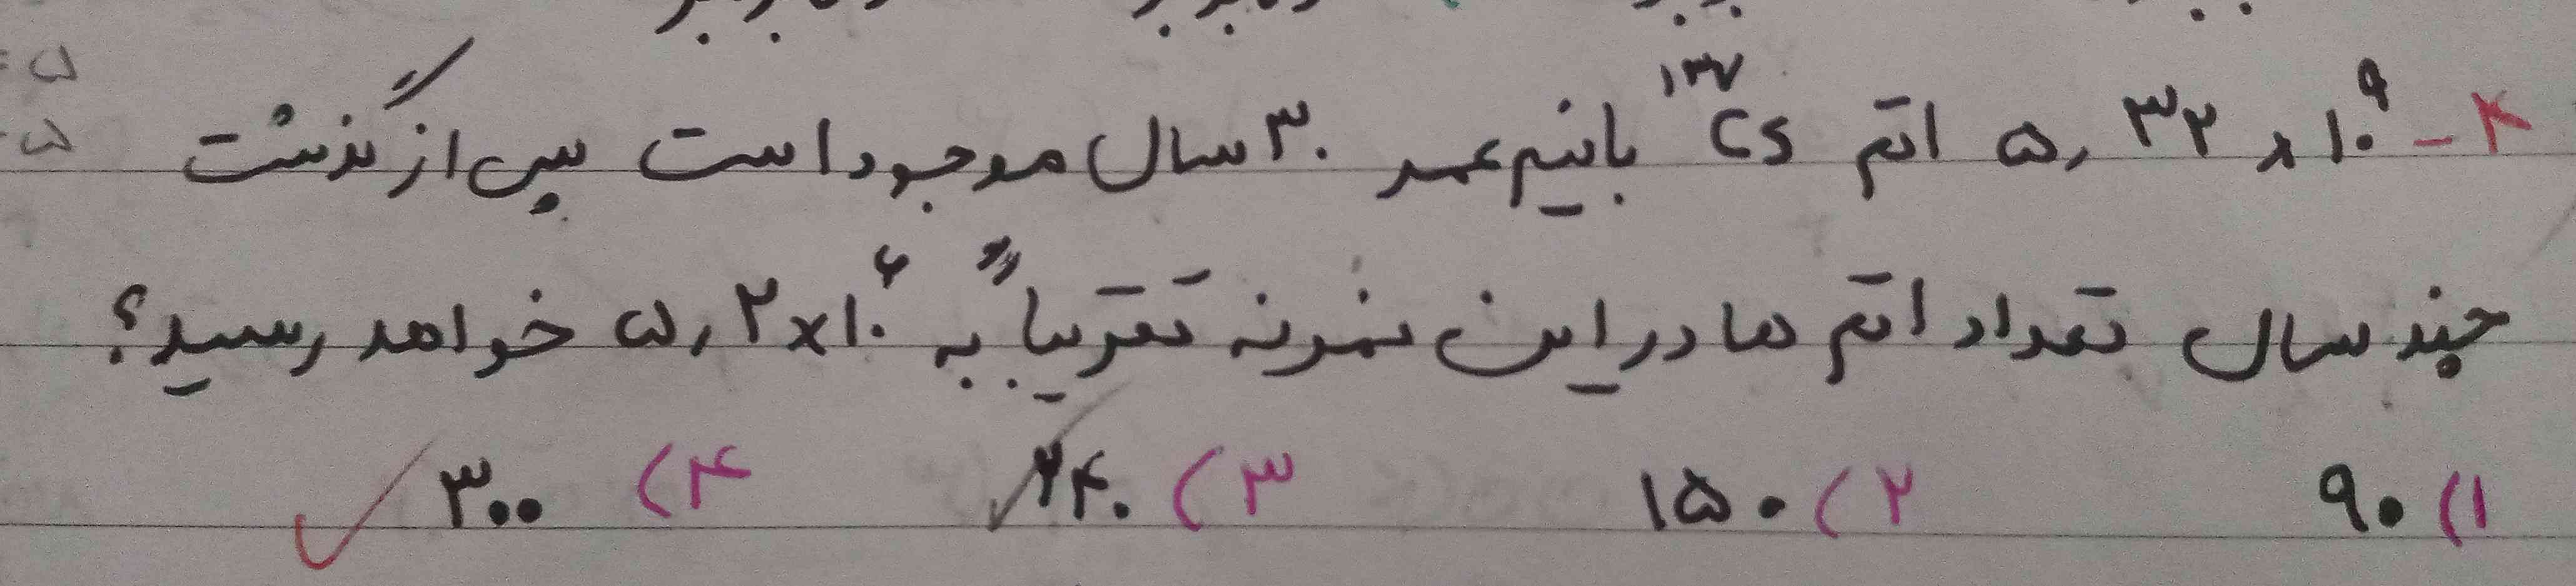 ۴- ۵٫۳۲×۱۰^۹ اتم ^۱۳۷Cs با نیم عمر ۳۰ سال موجود است پس از گذشت
چند سال تعداد اتم ها در این نمونه تقریباً به ۵٫۲×۱۰^۶ خواهد رسید؟
۱) ۹۰ ۲) ۱۵۰ ۳) ۲۴۰ ۴) ۳۰۰